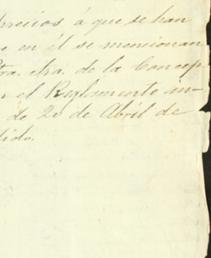 precios á que se han
en él se mencionan
tra. Sra. de la Concep
el Reglamento in-
de 20 de Abril de
dido.